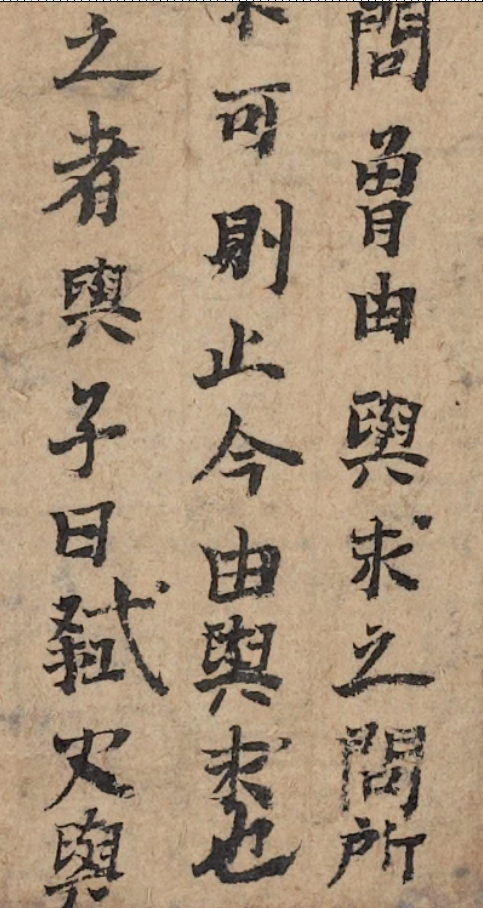 問曾由與求之問所
不可則止今由與求也
之者與子曰弒父與